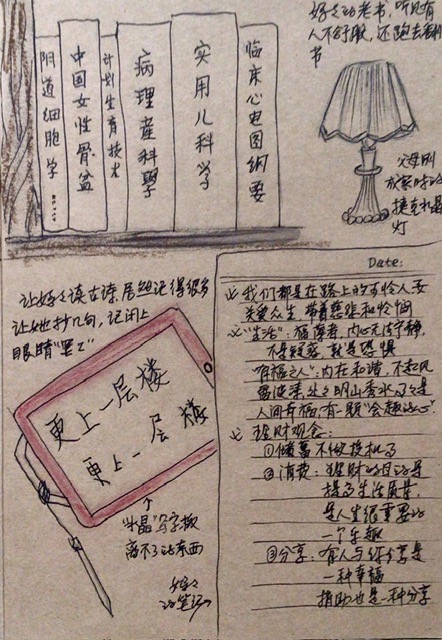 阴道细胞学……
中国女性骨盆
计划生育技术
病理産科學
实用儿科学
临床心电图纲要
好之功老书，听见有
人不舒服，还跑去看
书
父母刚
成家时的
捷克水晶
灯
让好之读古诗，居然记得很多
让她抄几句，记闭上
眼睛"罢工"
更上一层楼
更上一层楼
↑
"水晶"写字板
离不了的东西
好之
功笔记
Date:
我们都是在路上的可怜人，要
关爱众生，带着慈悲和怜悯
"生活"：福薄者，内心无法宁静，
不是疑惑，就是恐惧
"有福之人"：内在和谐，不起风
暴波涛，处之明山秀水
人间有福，有一颗"会趣的心"
理财观念：
①储蓄不做投机
②消费：理财的目的是
提高生活质量，
是人生很重要的
一个乐趣
③分享：有人与你分享是
一种幸福
捐助也是一种分享